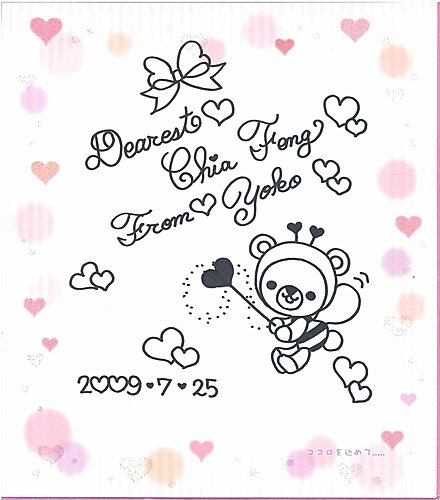 Dearest
Chia Feng
From Yoko
2009・7・25
ココロを込めて.....